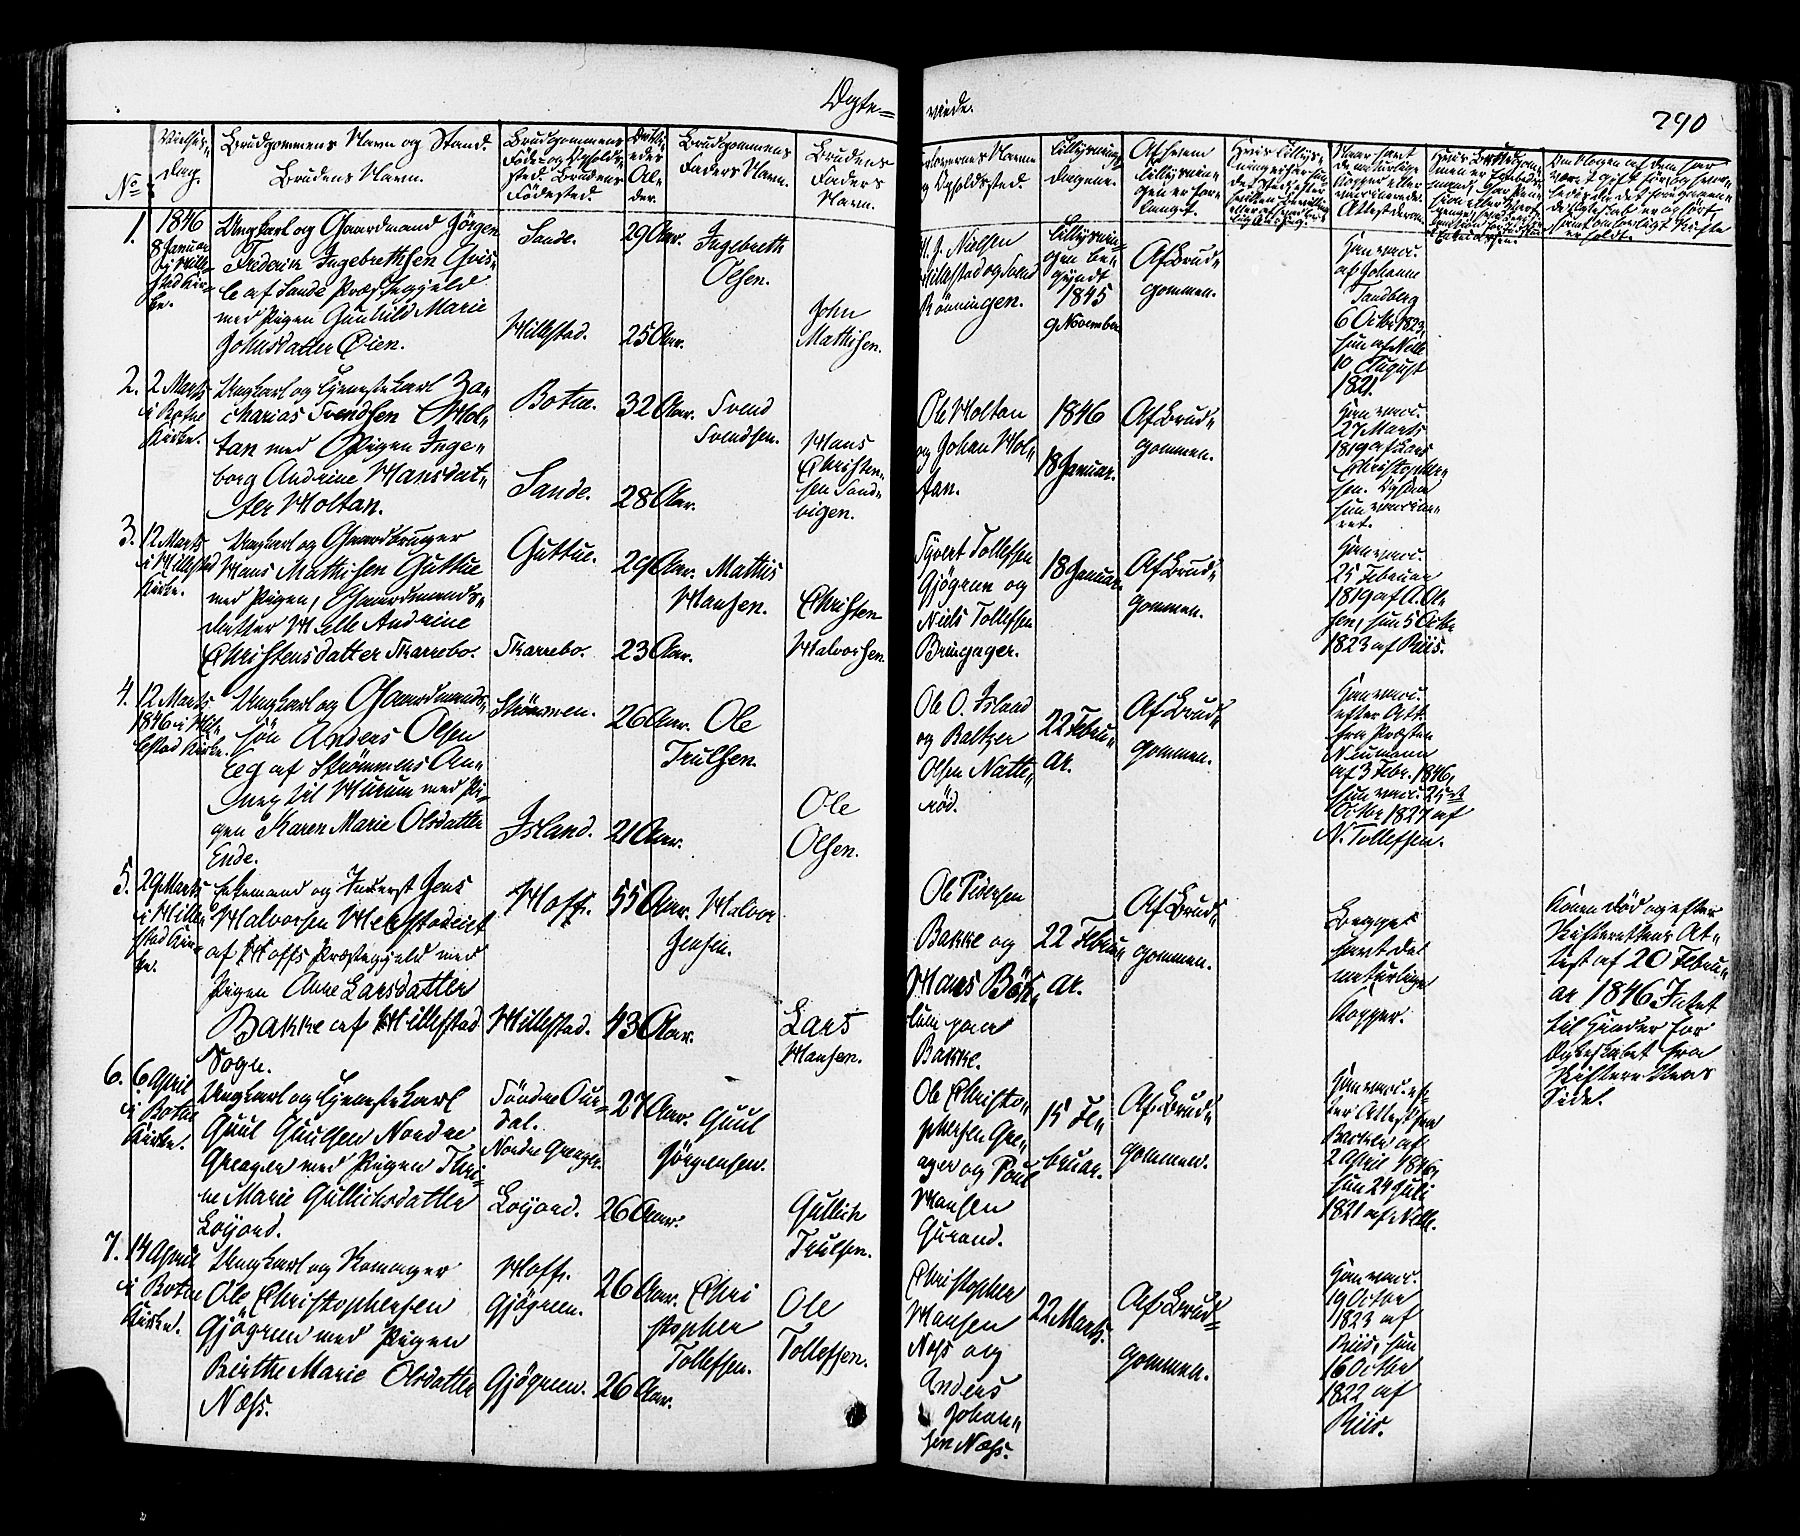 Ægte=
viede.
290
No
Vielses-
dag.
Brudgommens Navn og Stand.
Brudens Navn.
Brudgommens
Føde- og Opholds-
sted. Brudens
Fødested.
Brudgommens
Faders Navn.
Brudens
Faders
Navn.
1.
1846
8 Januar
Ungkarl og Gaardmand Jörgen
Frederik Ingebrethsen
af Sande Præstegjeld
med Pigen Gunhild Marie
Johnsdatter Eien.
Sande.
Hillestad.
29 Aar.
25 Aar.
Ingebreth
Olsen.
John
Mathisen.
H. J. Nielsen
Hillestad og
Rönningen.
Lysnin-
gen be-
gyndt
1845
9 November
Af Brud-
gommen.
Han vacc.
af Johanne
Tandberg
6 Octbr 1823,
hun af
10 August
1821.
2.
2 Marts
i Botne
Kirke.
Ungkarl og Tjenestekarl Za-
charias Svendsen Hol-
tan med Pigen Inge-
borg Andrine Hansdat-
ter Holtan.
Botne.
Sande.
32 Aar.
28 Aar.
Svend
Svendsen.
Hans
Christen-
sen Sand-
vigen.
Ole Holtan
og Johan Hol-
tan.
1846
18 Januar.
Af Brud-
gommen.
Han vacc.
27 Marts
1819 af Lars
Christopher-
sen.
3.
12 Marts
i Hillestad
Kirke.
Ungkarl og Gaardbruger
Hans Mathisen Guttue
med Pigen, Gaardmands-
datter Helle Andrine
Christensdatter Skarrebo.
Guttue.
Skarrebo.
29 Aar.
23 Aar.
Mathis
Hansen.
Christen
Halvorsen
Syvert Tollefsen
Gjögren og
Niels Tollefsen
Bringager.
18 Januar.
Af Brud-
gommen.
Han vacc.
25 Februar
1819 af A. Ol-
sen, hun 5 Octbr
1823 af Riis.
4.
12 Marts
1846 i Hil-
lestad Kirke.
Ungkarl og Gaardmands-
sön Anders Olsen
Eeg af Strömmens An-
nex til Hurum med Pi-
gen Karen Marie Olsdatter
Ende.
Strömmen.
Island.
26 Aar.
21 Aar.
Ole
Trulsen.
Ole
Olsen.
Ole O. Island
og Baltzer
Olsen Natte-
röd.
22 Febru-
ar.
Af Brud-
gommen.
Han vacc.
efter Att.
fra Præsten
Neumann
af 3 Febr. 1846,
hun vacc. 25de
Octbr 1827 af
N. Tollefsen.
5.
29 Marts
i Hille-
stad Kir-
ke.
Enkemand og Inderst Jens
Halvorsen
af Hoffs Præstegjeld med
Pigen Anne Larsdatter
Bakke af Hillestad
Sogn.
Hoff.
Hillestad.
55 Aar.
43 Aar.
Halvor
Jensen.
Lars
Hansen.
Ole Pedersen
Bakke og
Hans
Bakke.
22 Febru-
ar.
Af Brud-
gommen.
Begge
havt de
naturlige
Kopper.
Konen död og efter
Skifterettens At-
test af 20 Febru-
ar 1846 Intet
til Hinder for
Ægteskabet fra
Skifterettens
Side.
6.
6 April
i Botne
Kirke.
Ungkarl og Tjenestekarl
Guul Guulsen Nordre
Greager med Pigen Thri-
ne Marie Gullichsdatter
Loyord.
Söndre Aur-
dal.
Nordre Greager.
Loyord.
27 Aar.
26 Aar.
Guul
Jörgensen.
Gullich
Trulsen.
Ole Christo-
phersen Gre-
ager og Poul
Hansen
15 Fe-
bruar.
Af Brud-
gommen.
Han vacc. ef-
ter Attest fra
2 April 1846,
hun 24 Juli
1821 af
7.
14 April
i Botne
Kirke.
Ungkarl og Skomager
Ole Christophersen
Gjögren med Pigen
Birthe Marie Olsdatter
Næss.
Hoff.
Gjögren.
Gjögren.
26 Aar.
26 Aar.
Chri
stopher
Tollefsen.
Ole
Tollefsen.
Christopher
Hansen
Næss og
Anders
Johan-
sen Næss.
22 Marts.
Af Brud-
gommen.
Han vacc.
19 Octbr
1823 af
Riis, hun
16 Octbr
1822 af
Riis.